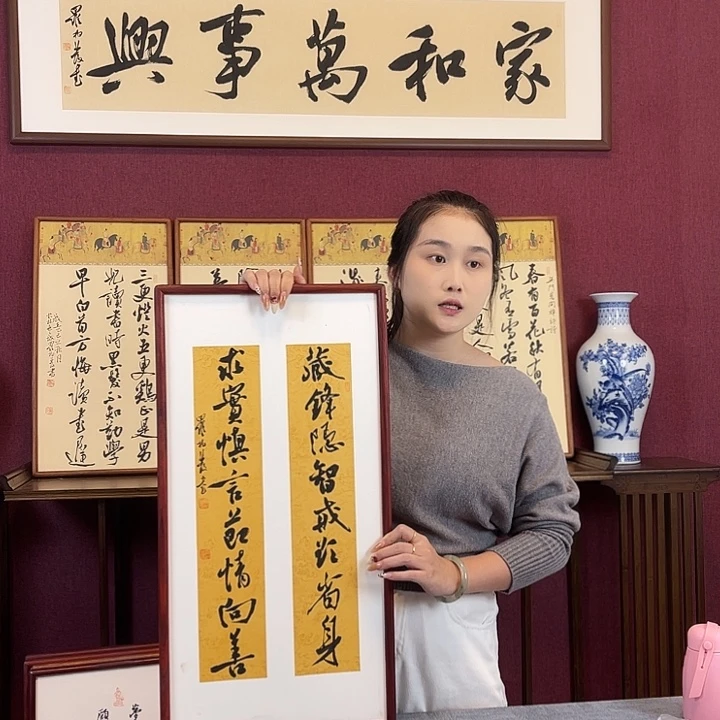 家和萬事興
三更燈火五更雞正是男
兒讀書時黑髮不知勤學
早白首方悔讀書遲
春有百花秋有
風冬有雪若
是人
藏鋒隐智戒欺省身
求實慎言節情向善